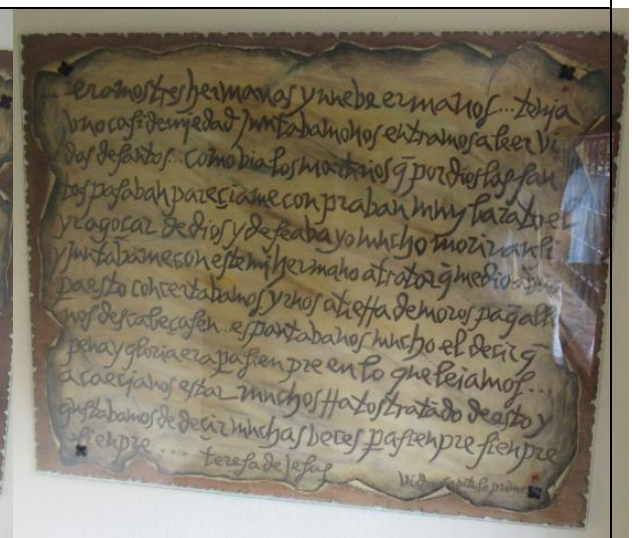 eramos tres hermanas y nuebe ermanos... tenia
vno casi de mi edad juntabamonos entramos a leer vi
das de santos... como via los martirios q̄ por dios las san
tos pasaban pareciame conpraban muy barato el
yr a gozar de dios y deseaba yo mucho morir ansi
y juntabame con este mi hermano a tratar q̄ medio abria
pa esto concertabamos yrnos a tierra de moros pa q̄ alla
nos descabeçasen.. espantabanos mucho el decir q̄
pena y gloria era pa sienpre en lo que leiamos...
acaecianos estar muchos ratos tratado de esto y
gustabamos de decir muchas beces pa sienpre sienpre
sienpre.... teresa de Jesus
Vida capitulo primero